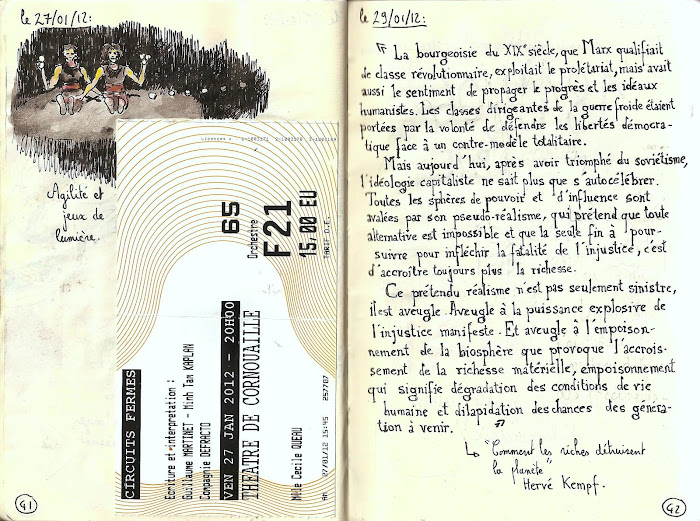 le 27/01/12:
Agilité et
jeux de
lumière.
CIRCUITS FERMES
Ecriture et interprétation :
Guillaume MARTINET - Minh Tan KAPLAN
Compagnie DEFRACTO
VEN 27 JAN 2012 - 20H00
THEATRE DE CORNOUAILLE
Mlle Cecile QUEAU
AM 07/01/12 15:45 257787
65
Orchestre
F21
15,00 EU
TARIF D.F.
91
le 29/01/12:
" La bourgeoisie du XIXe siècle, que Marx qualifiait
de classe révolutionnaire, exploitait le prolétariat, mais avait
aussi le sentiment de propager le progrès et les idéaux
humanistes. Les classes dirigeantes de la guerre froide étaient
portées par la volonté de défendre les libertés démocra-
tique face à un contre-modèle totalitaire.
Mais aujourd'hui, après avoir triomphé du soviétisme,
l'idéologie capitaliste ne sait plus que s'autocélébrer.
Toutes les sphères de pouvoir et d'influence sont
avalées par son pseudo-réalisme, qui prétend que toute
alternative est impossible et que la seule fin à pour-
suivre pour infléchir la fatalité de l'injustice, c'est
d'accroître toujours plus la richesse.
Ce prétendu réalisme n'est pas seulement sinistre,
il est aveugle. Aveugle à la puissance explosive de
l'injustice manifeste. Et aveugle à l'empoison-
nement de la biosphère que provoque l'accrois-
sement de la richesse matérielle, empoisonnement
qui signifie dégradation des conditions de vie
humaine et dilapidation des chances des généra-
tion à venir. "
↳ "Comment les riches détruisent
la planète"
Hervé Kempf.
92